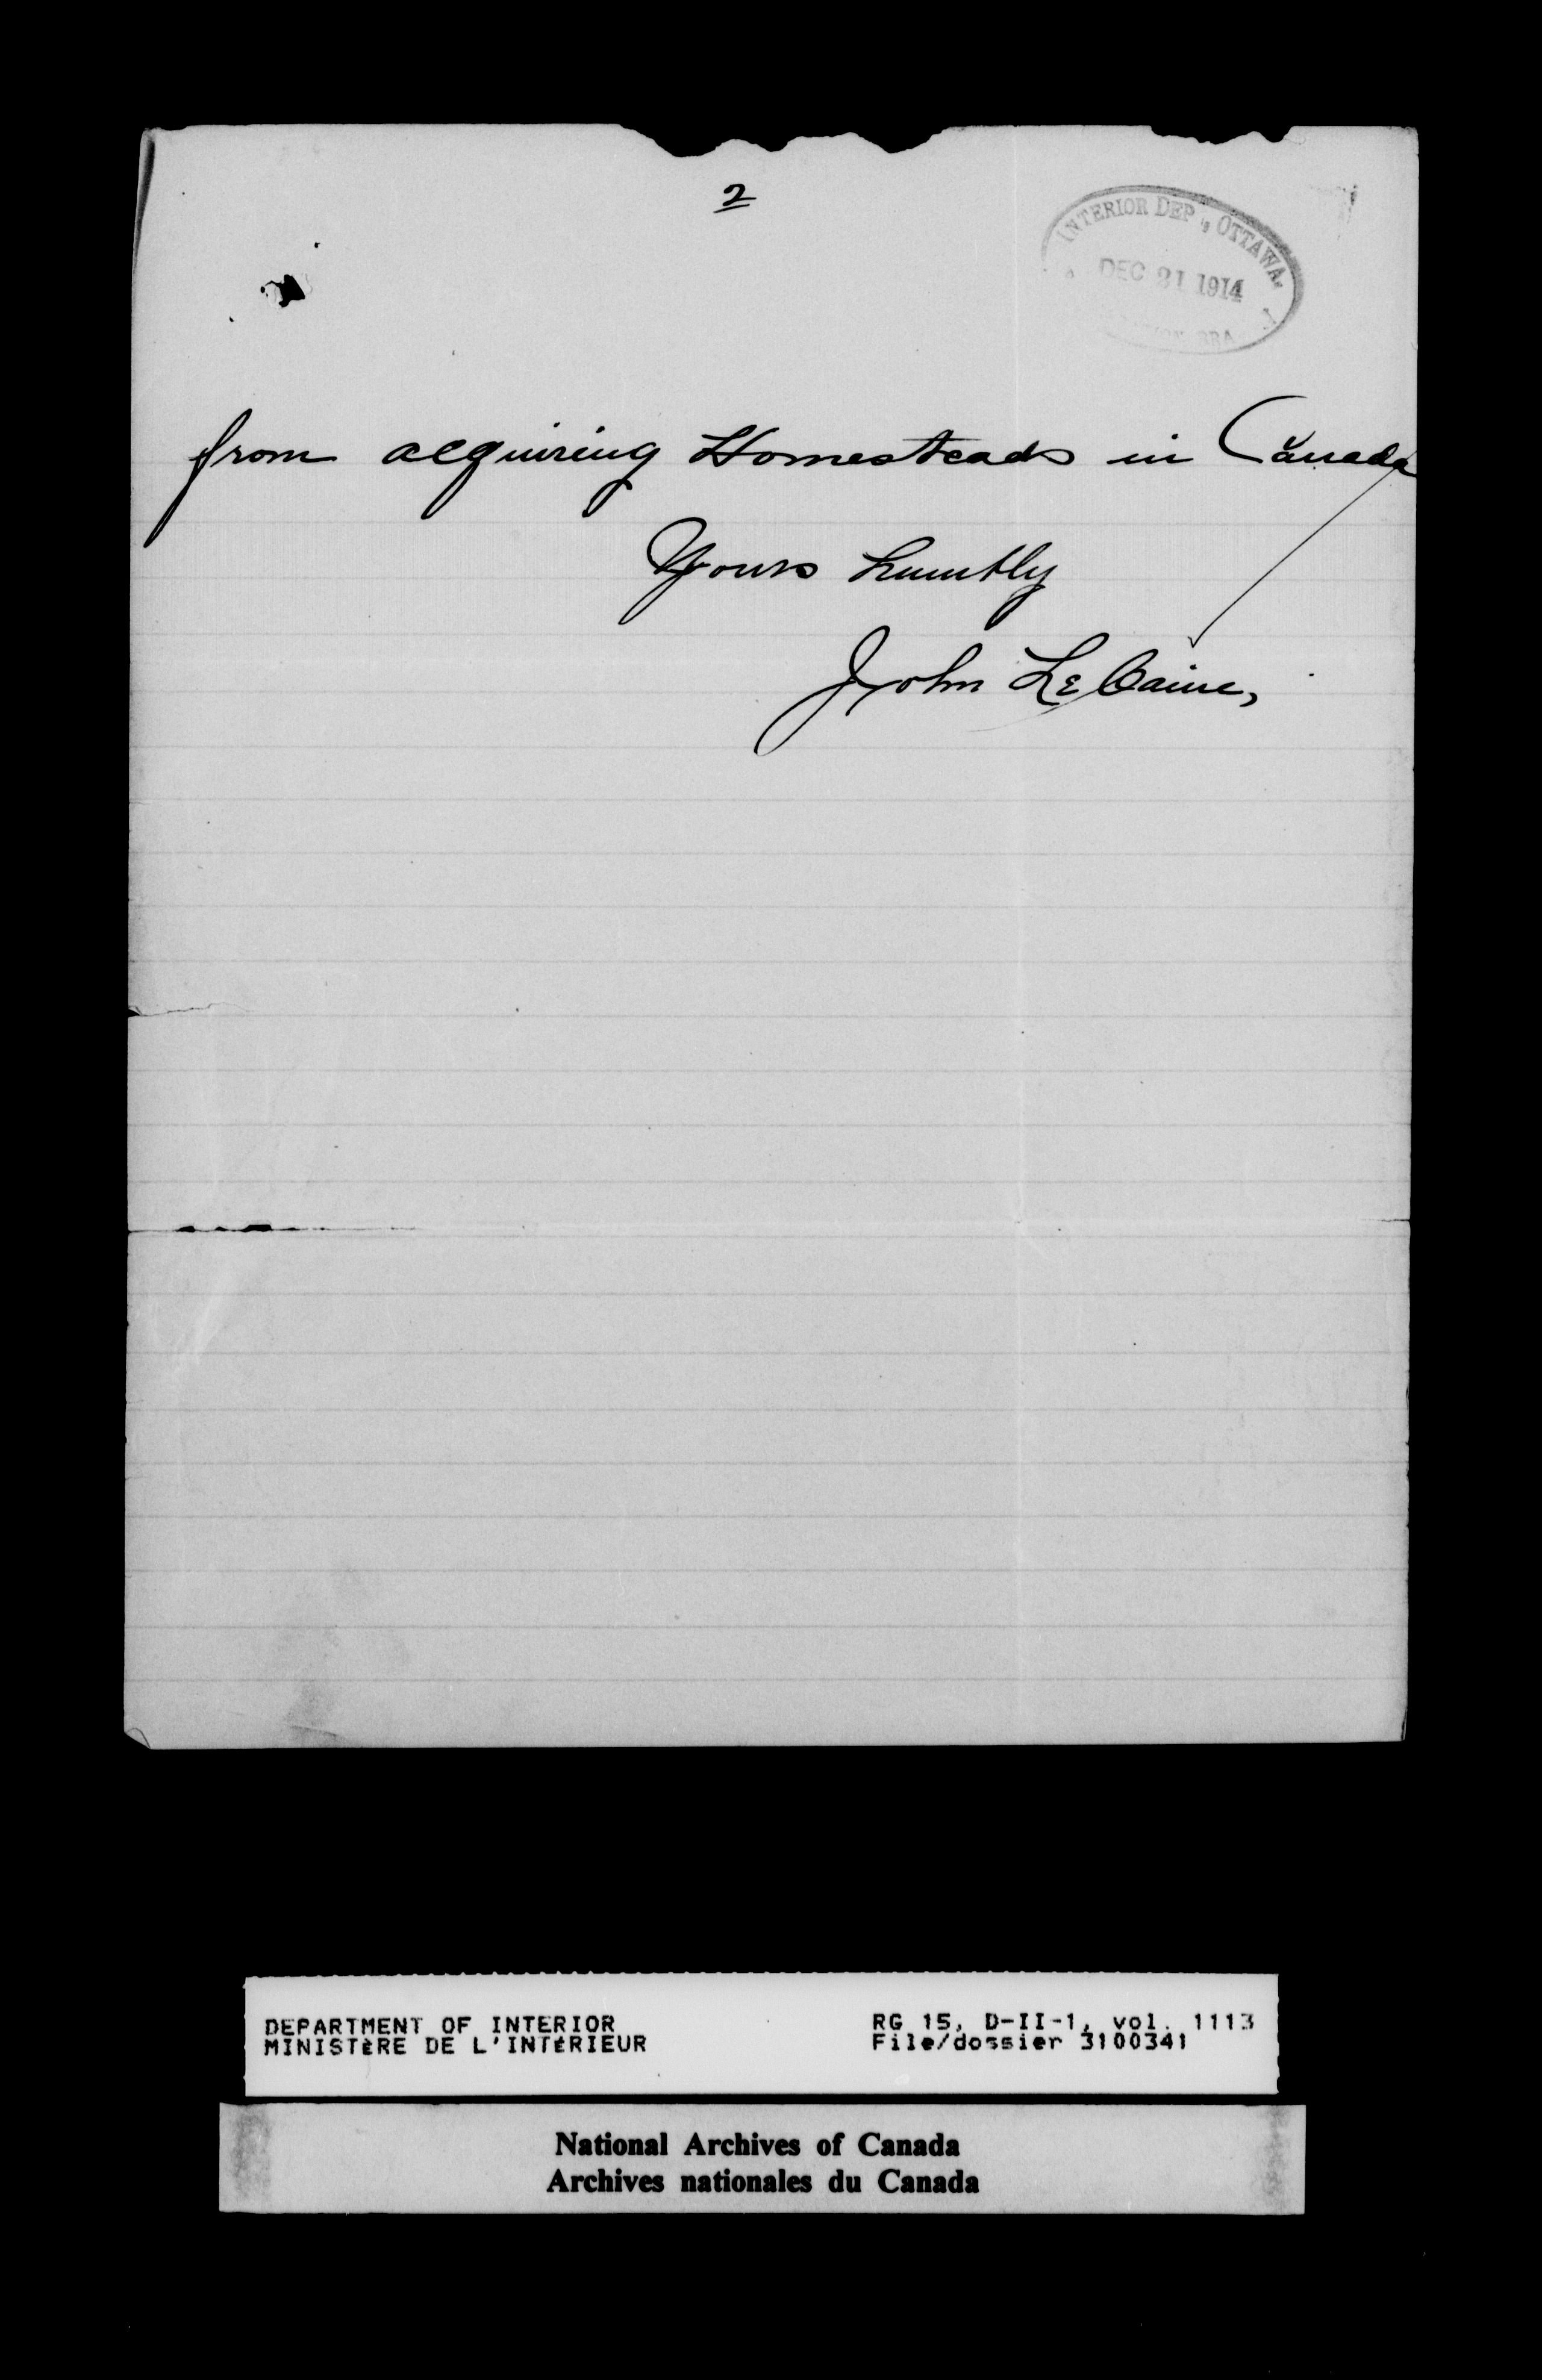 2
INTERIOR DEP'., OTTAWA.
DEC 21 1914
BRA
from acquiring Homesteads in Canada
Yours humbly
John LeCaine,
DEPARTMENT OF INTERIOR
MINISTÈRE DE L'INTÉRIEUR
RG 15, D-II-1, vol. 1113
File/dossier 3100341
National Archives of Canada
Archives nationales du Canada